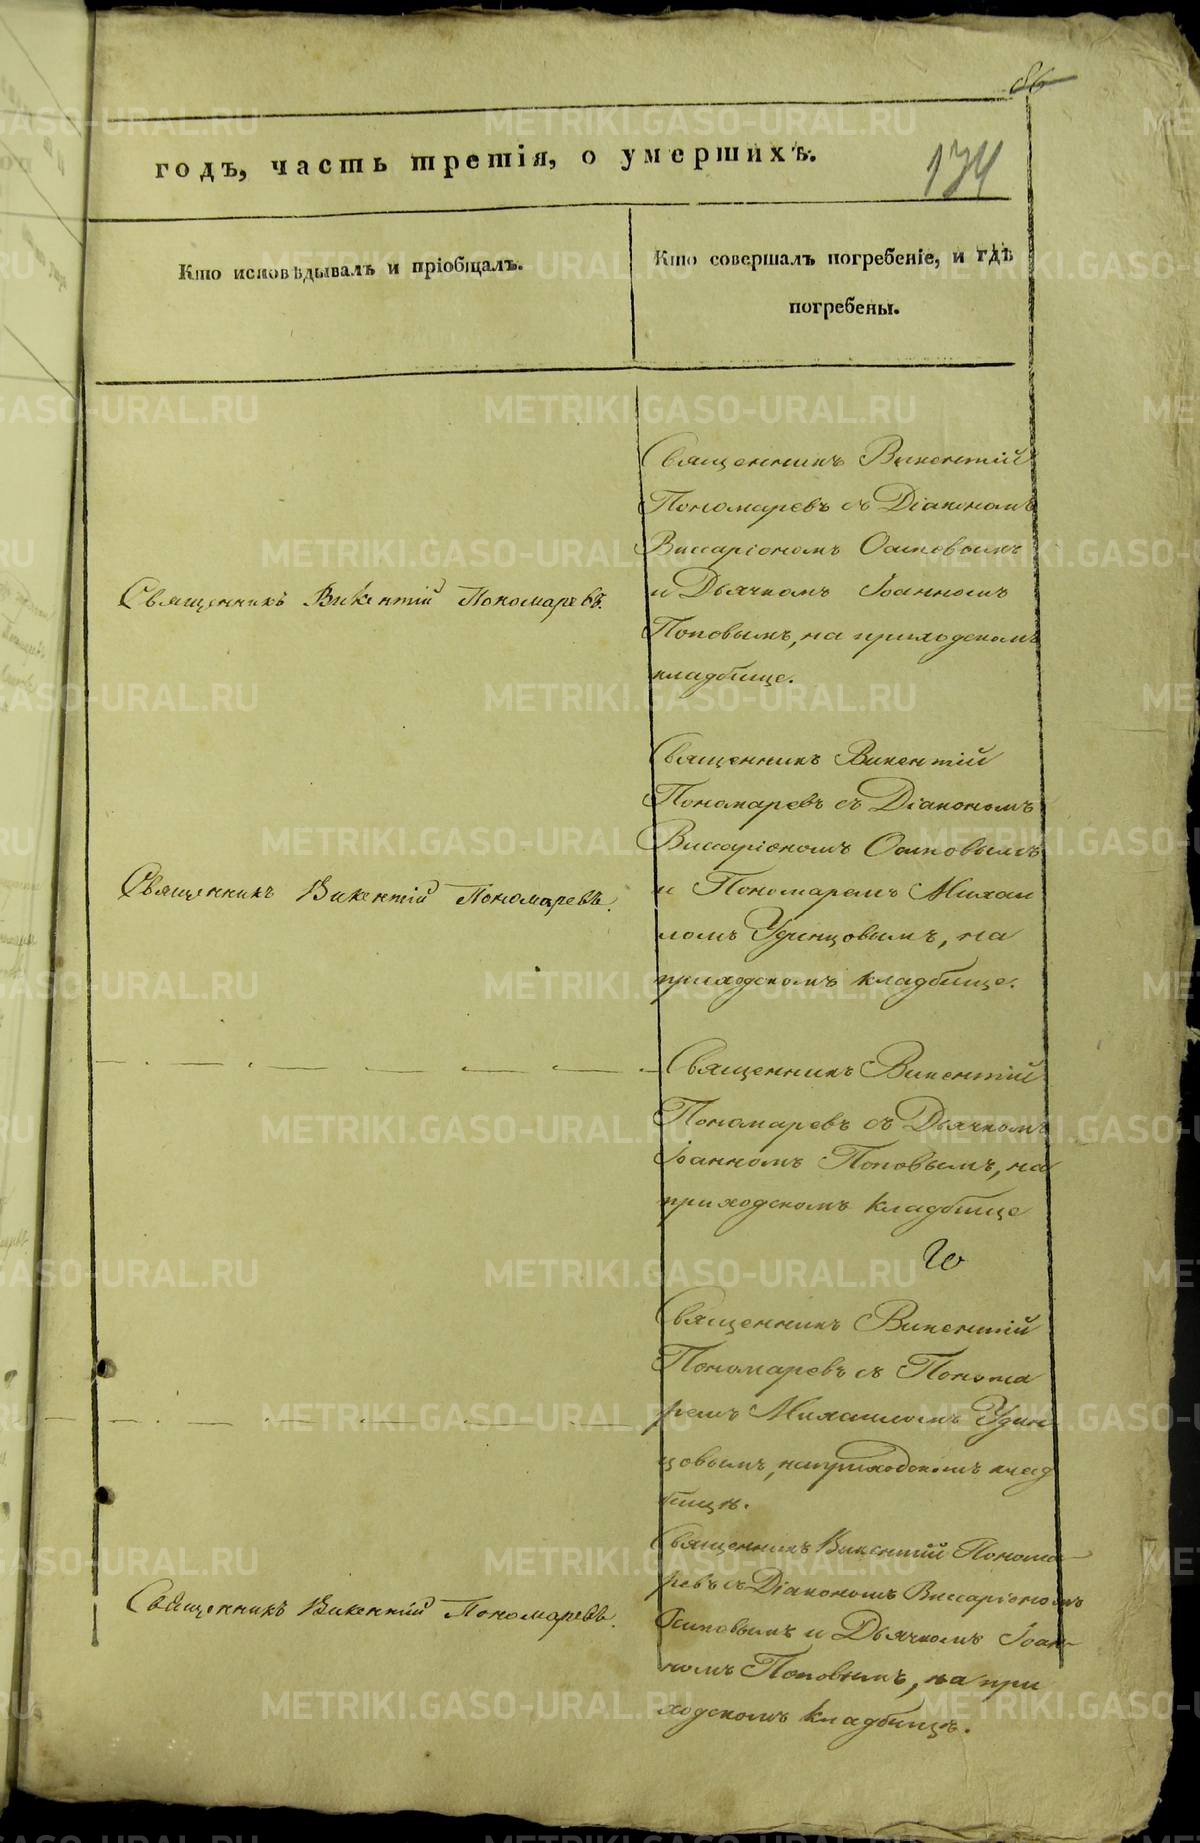 86
годъ, часть третія, о умершихъ.
174
Кто исповѣдывалъ и пріобщалъ.
Кто совершалъ погребеніе, и гдѣ
погребены.
Священникъ Викентій Пономаревъ.
Священникъ Викентій
Пономаревъ съ Діакономъ
Виссаріономъ Осиповымъ
и Дьячкомъ Іоанномъ
Поповымъ, на приходскомъ
кладбище.
Священникъ Викентій Пономаревъ.
Священникъ Викентій
Пономаревъ съ Діакономъ
Виссаріономъ Осиповымъ
и Пономаремъ Михаи
ломъ Удинцовымъ, на
приходскомъ кладбище.
Священникъ Викентій
Пономаревъ съ Дьячкомъ
Іоанномъ Поповымъ, на
приходскомъ кладбище
Священникъ Викентій
Пономаревъ съ Понома
ремъ Михаиломъ Удин
цовымъ, на приходскомъ клад
бищѣ.
Священникъ Викентій Пономаревъ.
Священникъ Викентій Понома
ревъ съ Діакономъ Виссаріономъ
Осиповымъ и Дьячкомъ Іоан-
номъ Поповымъ, на при
ходскомъ кладбищѣ.
METRIKI.GASO-URAL.RU